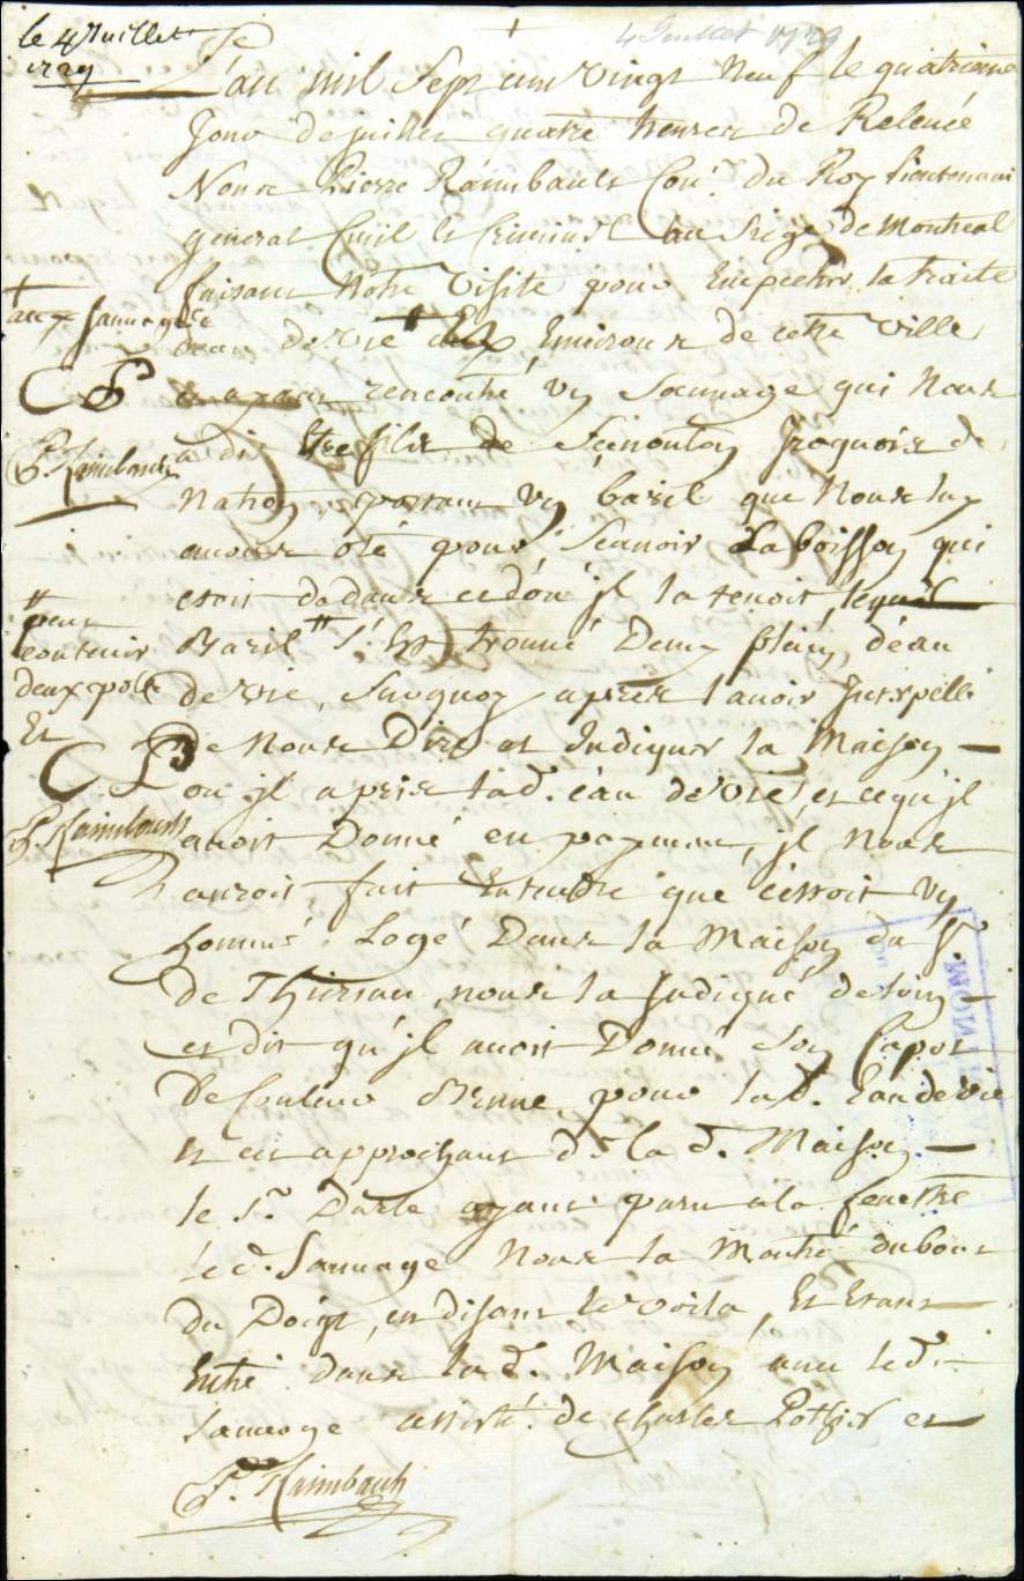 le 4 Juillet
1729
4 Juillet 1729
L'an mil sept cens vingt neuf le quatrieme
Jour de juillet quatre heures de Relevée
Nous Pierre Raimbault Con.er du Roy Lieutenant
general Civil et Criminel au siege de Montreal
faisant Notre Visite pour Empecher la traitte
deau de vie Environs de cette ville
+
aux sauvages
P. Raimbault
ayant rencontré un Sauvage qui Nous
a dit Estre fils de Iroquois de
Nation, portant un baril que Nous luy
avons oté pour scavoir La boisson qui
estoit dedans et d'où jl la tenoit, lequel
Baril # s'est trouvé Demy plein d'eau
de vie, Surquoy apres l'avoir Interpellé
#
peut
contenir
deux pots
Et
P. Raimbault
De Nous Dire et Indiquer la Maison
où jl a pris lad. eau de vie, et ce qu'jl
avoit Donné en payement, jl Nous
auroit fait Entendre que c'estoit un
homme Logé Dans la Maison du S.r
De Thiersan, nous la Indiqué de loin
et dit qu'jl avoit Donné son Capot
De Couleur Brune pour lad. Eau de vie
et en approchant de la d. Maison
le S.r Darles ayant paru a la fenestre
led. Sauvage Nous la Montré du bout
du Doigt, en disant le voila, Et Etant
Entré dans la d. Maison avec led.
Sauvage assisté de Charles Pothier et
P. Raimbault